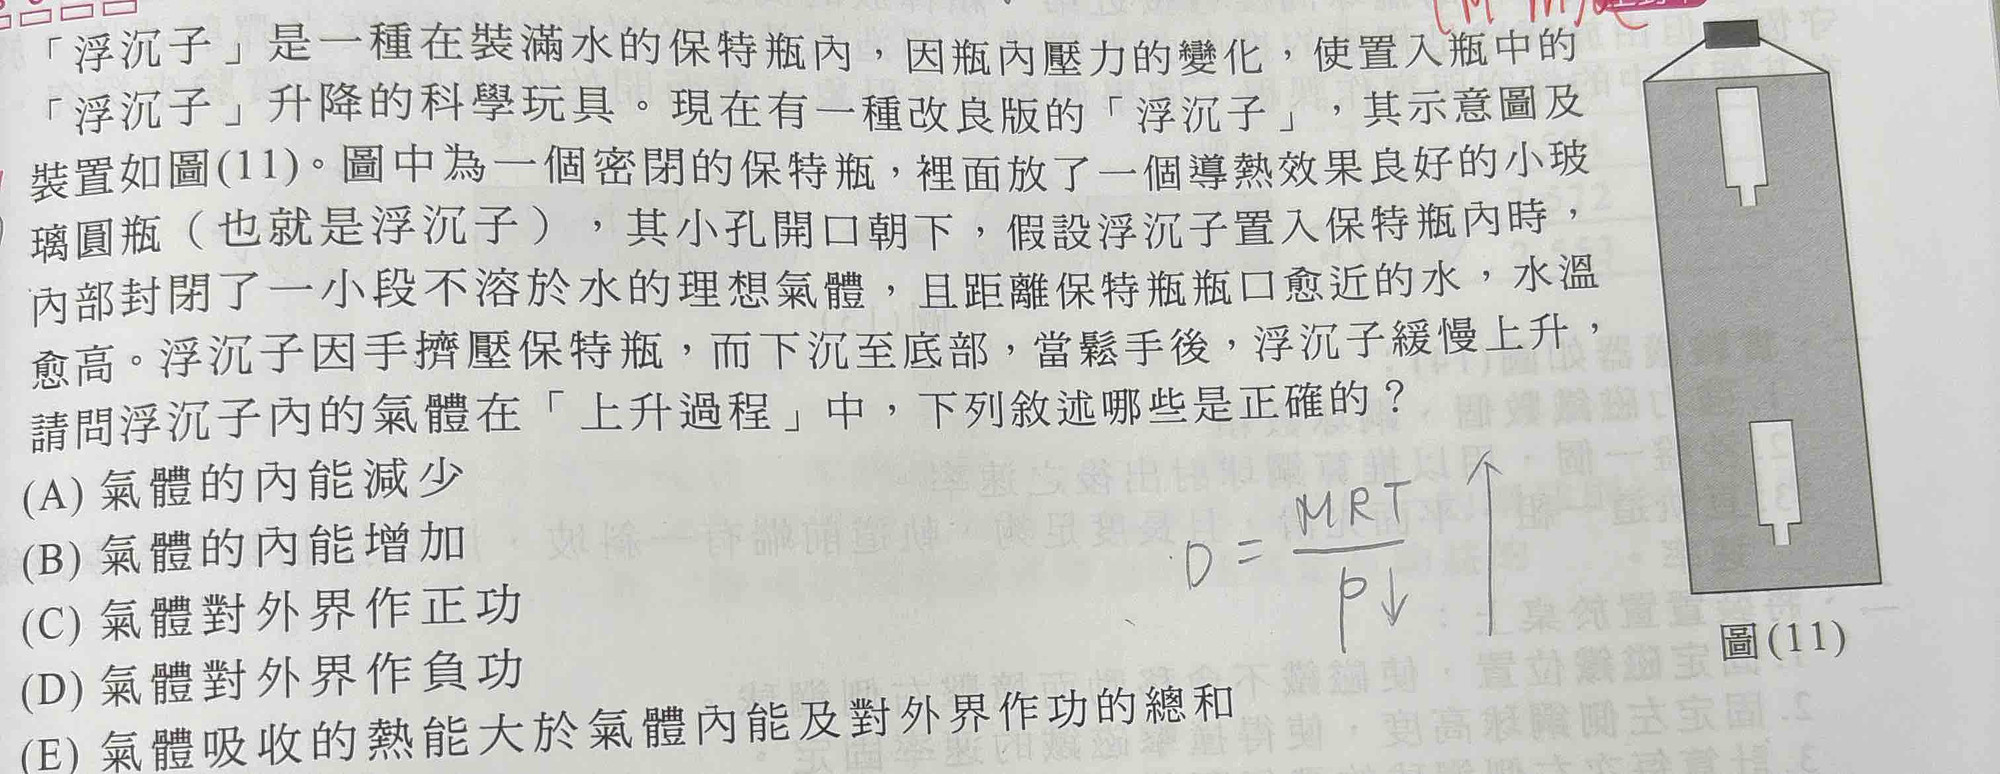 「浮沉子」是一種在裝滿水的保特瓶內，因瓶內壓力的變化，使置入瓶中的
「浮沉子」升降的科學玩具。現在有一種改良版的「浮沉子」，其示意圖及
裝置如圖(11)。圖中為一個密閉的保特瓶，裡面放了一個導熱效果良好的小玻
璃圓瓶（也就是浮沉子），其小孔開口朝下，假設浮沉子置入保特瓶內時，
內部封閉了一小段不溶於水的理想氣體，且距離保特瓶瓶口愈近的水，水溫
愈高。浮沉子因手擠壓保特瓶，而下沉至底部，當鬆手後，浮沉子緩慢上升，
請問浮沉子內的氣體在「上升過程」中，下列敘述哪些是正確的？
(A) 氣體的內能減少
(B) 氣體的內能增加
(C) 氣體對外界作正功
(D) 氣體對外界作負功
(E) 氣體吸收的熱能大於氣體內能及對外界作功的總和
圖(11)